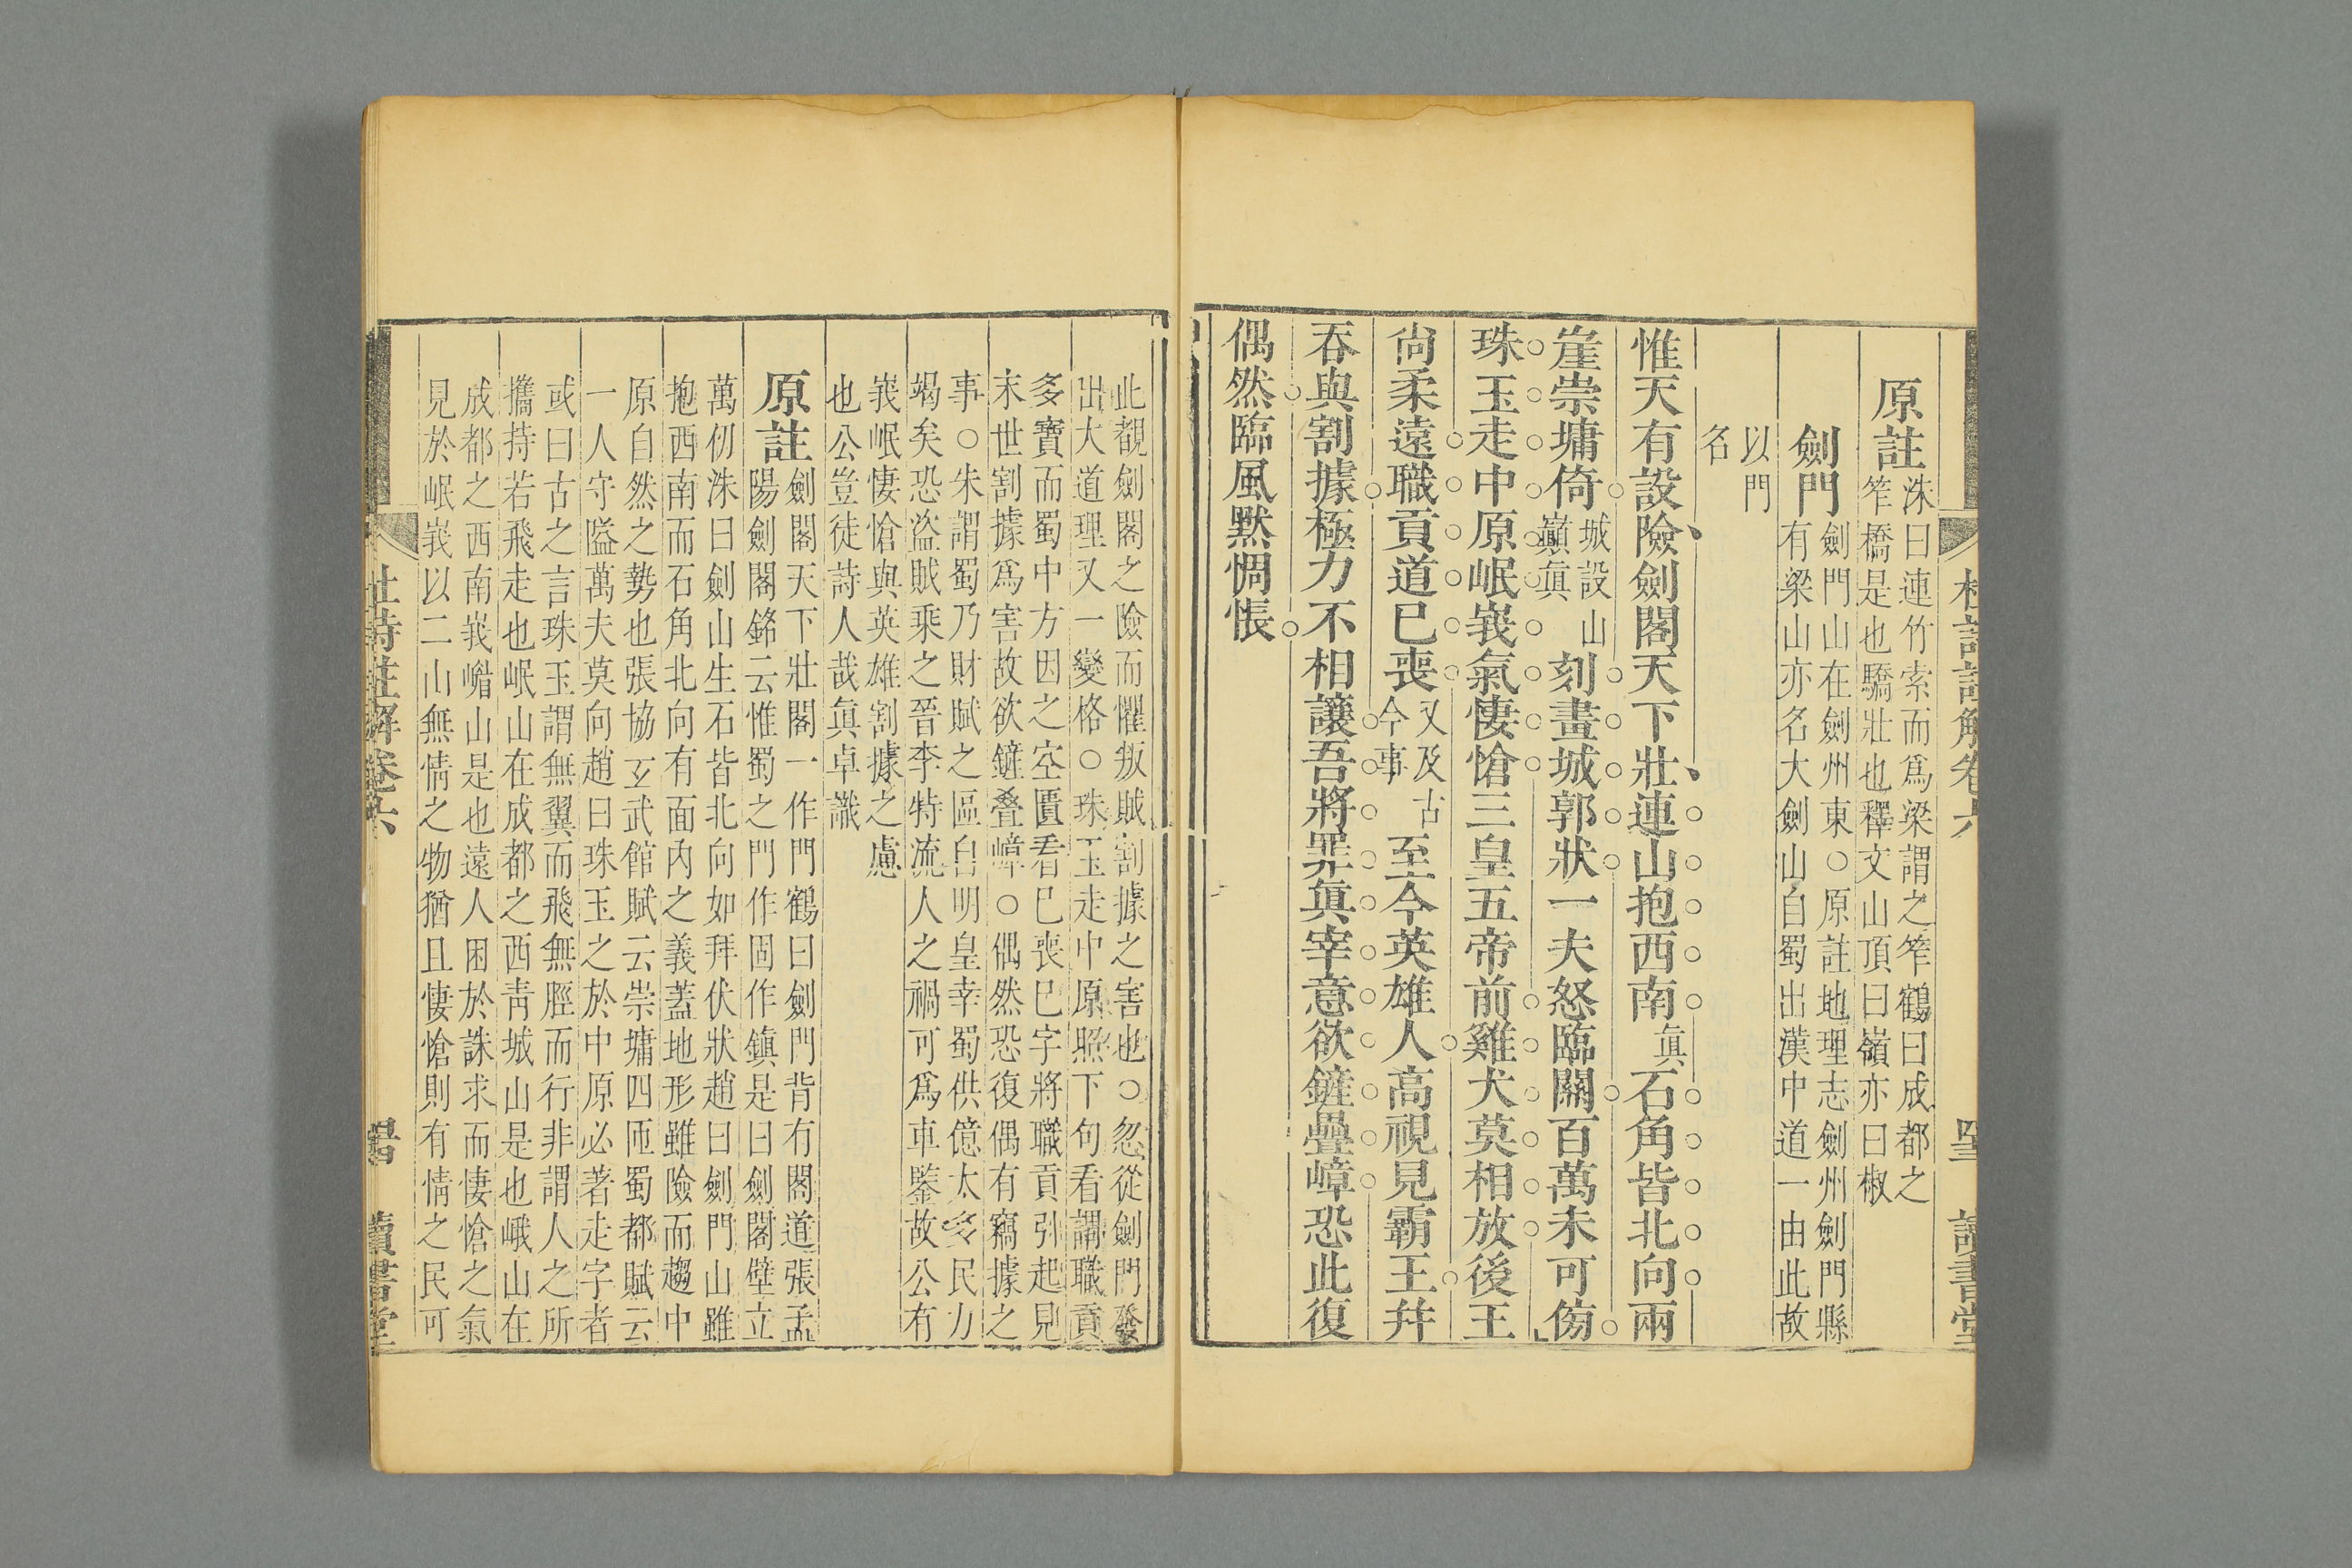 原註洙曰連竹索而爲梁謂之筰鶴曰成都之
筰橋是也驕壯也釋文山頂曰嶺亦曰椒
劍門劍門山在劍州東○原註地理志劍州劍門縣
有梁山亦名大劍山自蜀出漢中道一由此故
以門
名
惟天有設險劍閣天下壯連山抱西南眞石角皆北向兩
崖崇墉倚城設山
巔眞刻畫城郭狀一夫怒臨關百萬未可傍
珠玉走中原岷峩氣悽愴三皇五帝前雞犬莫相放後王
尙柔遠職貢道已喪又及古
今事至今英雄人高視見霸王并
吞與割據極力不相讓吾將罪眞宰意欲鏟疊嶂恐此復
偶然臨風默惆悵
此覩劍閣之險而懼叛賊割據之害也○忽從劍門發
出大道理又一變格○珠玉走中原照下句看謂職貢
多寶而蜀中方因之空匱看已喪已字將職貢引起見
末世割據爲害故欲鏟叠嶂○偶然恐復偶有竊據之
事○朱謂蜀乃財賦之區自明皇幸蜀供億太多民力
竭矣恐盜賊乘之晉李特流人之禍可爲車鑒故公有
峩岷悽愴與英雄割據之慮
也公豈徒詩人哉眞卓識
原註劍閣天下壯閣一作門鶴曰劍門背有閣道張孟
陽劍閣銘云惟蜀之門作固作鎮是曰劍閣壁立
萬仞洙曰劍山生石皆北向如拜伏狀趙曰劍門山雖
抱西南而石角北向有面內之義蓋地形雖險而趨中
原自然之勢也張協玄武館賦云崇墉四匝蜀都賦云
一人守隘萬夫莫向趙曰珠玉之於中原必著走字者
或曰古之言珠玉謂無翼而飛無脛而行非謂人之所
攜持若飛走也岷山在成都之西靑城山是也峨山在
成都之西南峩嵋山是也遠人困於誅求而悽愴之氣
見於岷峩以二山無情之物猶且悽愴則有情之民可
杜詩註解卷六
讀書堂